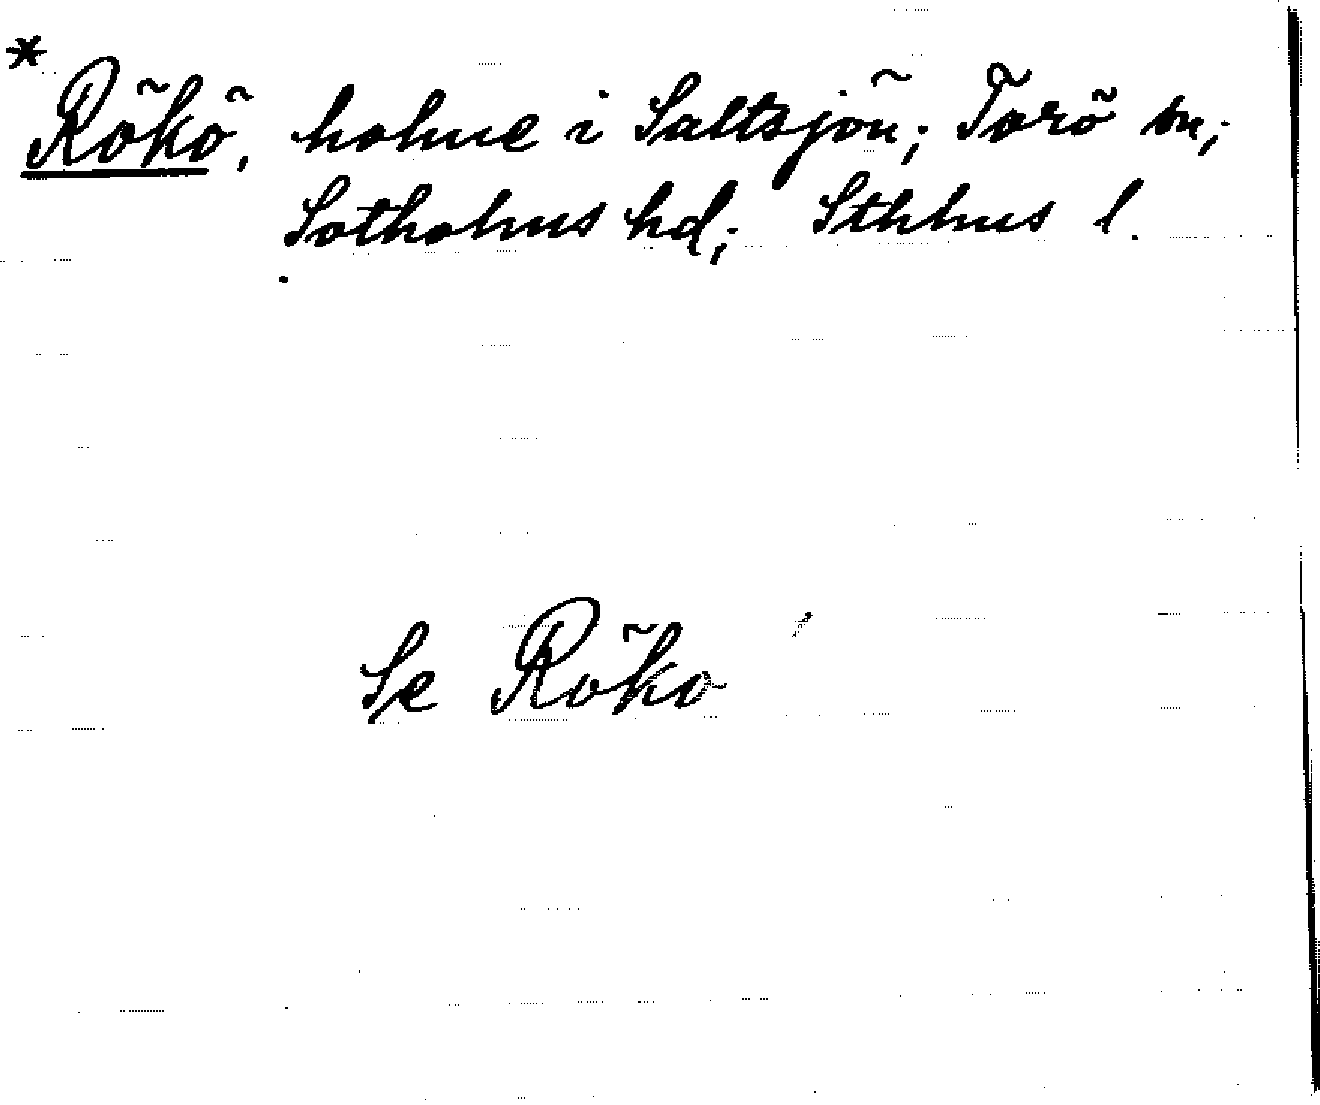 *
Rökö, holme i Saltsjön; Torö sn;
Sotholms hd; Sthlms l.
Se Röko